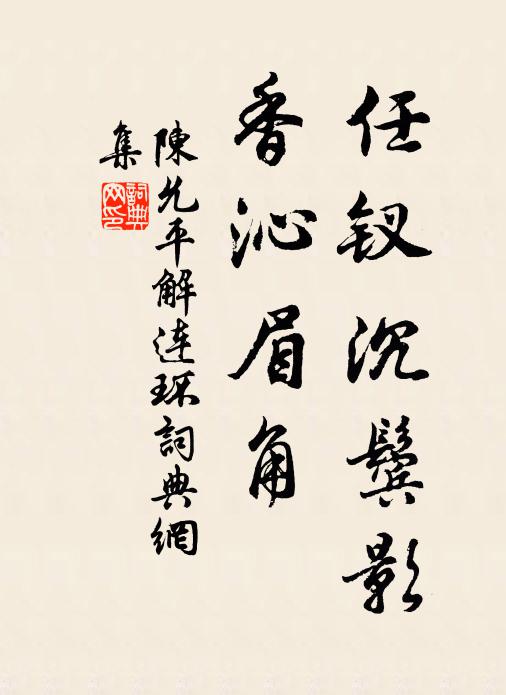 任钗沉鬓影
香沁眉角
陳允平解連環詞典網
集
詞典网印